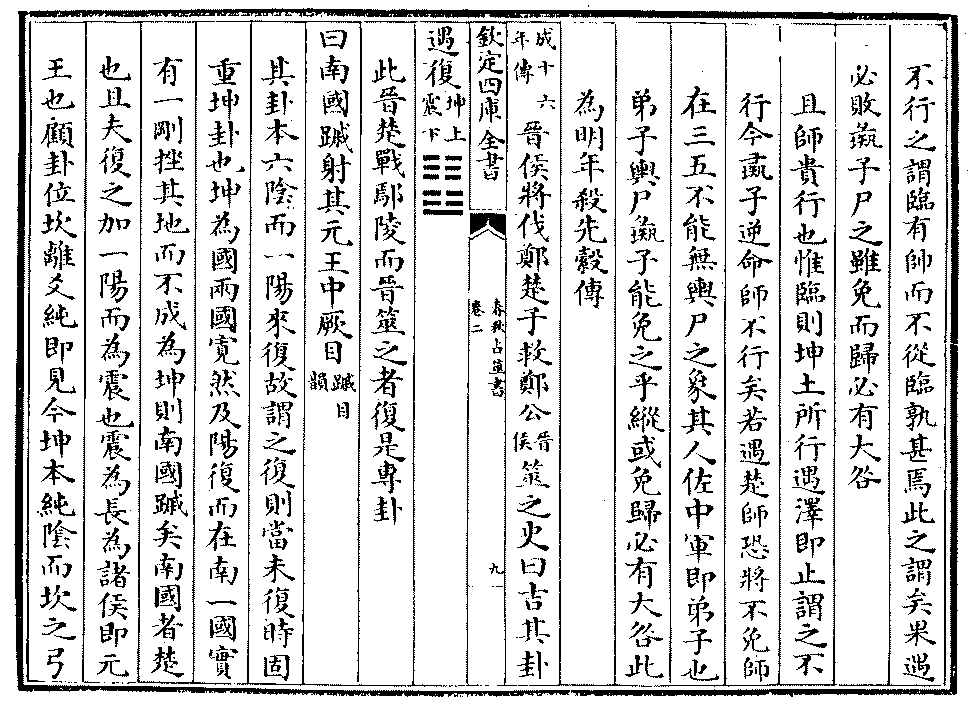 不行之謂臨有帥而不從臨孰甚焉此之謂矣果遇
必敗彘子尸之雖免而歸必有大咎
且師貴行也惟臨則坤土所行遇澤即止謂之不
行今彘子逆命師不行矣若遇楚師恐將不免師
在三五不能無輿尸之象其人佐中軍即弟子也
弟子輿尸彘子能免之乎縱或免歸必有大咎此
為明年殺先縠傳
成十六年傳晉侯將伐鄭楚子救鄭公晉侯筮之史曰吉其卦
欽定四庫全書
春秋占筮書
卷二
九
遇復坤上震下䷗
此晉楚戰鄢陵而晉筮之者復是専卦
曰南國䠞射其元王中厥目䠞目韻
其卦本六陰而一陽來復故謂之復則當未復時固
重坤卦也坤為國兩國寛然及陽復而在南一國實
有一剛挫其地而不成為坤則南國䠞矣南國者楚
也且夫復之加一陽而為震也震為長為諸侯即元
王也顧卦位坎離爻純即見今坤本純陰而坎之弓